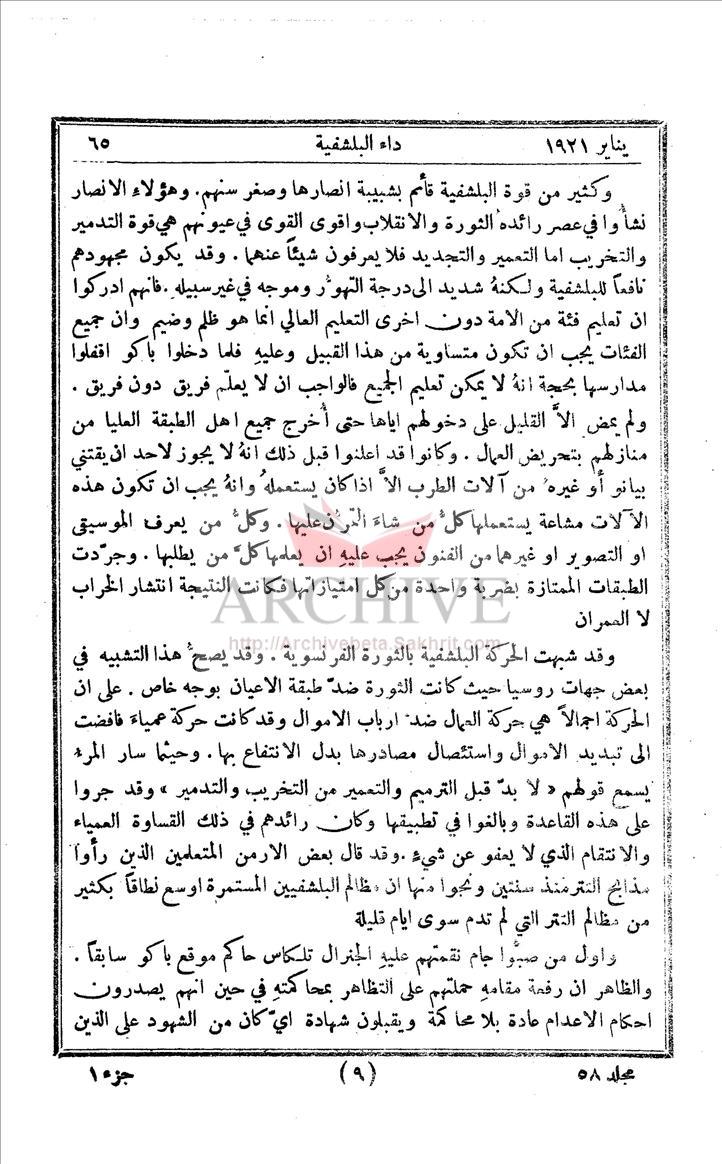 يناير ١٩٢١ داء البلشفية ٦٥
وكثير من قوة البلشفية قأتم بشبيبة انصارها وصغر سنهم. وهؤلاء الانصار
نشأوا في عصر رائده الثورة والانقلاب واقوى القوى في عيونهم هي قوة التدمير
والتخريب اما التعمير والتجديد فلا يعرفون شيئاً عنهما. وقد يكون مجهودهم
نافعاً للبلشفية ولكنهُ شديد الى درجة التهوُّر وموجه في غير سبيله. فانهم ادركوا
ان تعليم فئة من الامة دون اخرى التعليم العالي انما هو ظلم وضيم وان جميع
الفئات يجب ان تكون متساوية من هذا القبيل وعليهِ فلما دخلوا باكو اقفلوا
مدارسها بحجة انهُ لا يمكن تعليم الجميع فالواجب ان لا يعلَّم فريق دون فريق.
ولم يمض الاَّ القليل على دخولهم اياها حتى أُخرج جميع اهل الطبقة العليا من
منازلهم بتحريض العمال. وكانوا قد اعلنوا قبل ذلك انهُ لا يجوز لاحد ان يقتني
بيانو أو غيرهُ من آلات الطرب الاَّ اذا كان يستعملهُ وانهُ يجب ان تكون هذه
الآلات مشاعة يستعملها كلُّ من شاءَ التمرُّن عليها. وكلُّ من يعرف الموسيقى
او التصوير او غيرهما من الفنون يجب عليهِ ان يعلمها كلَّ من يطلبها. وجرّدت
الطبقات الممتازة بضربة واحدة من كل امتيازاتها فكانت النتيجة انتشار الخراب
لا العمران
وقد شبهت الحركة البلشفية بالثورة الفرنسوية. وقد يصحُّ هذا التشبيه في
بعض جهات روسيا حيث كانت الثورة ضدّ طبقة الاعيان بوجه خاص. على ان
الحركة اجمالاً هي حركة العمال ضد ارباب الاموال وقد كانت حركة عمياءَ فافضت
الى تبديد الاموال واستئصال مصادرها بدل الانتفاع بها. وحيثما سار المرءُ
يسمع قولهم « لا بدّ قبل الترميم والتعمير من التخريب والتدمير » وقد جروا
على هذه القاعدة وبالغوا في تطبيقها وكان رائدهم في ذلك القساوة العمياء
والانتقام الذي لا يعفو عن شيءٍ. وقد قال بعض الارمن المتعلمين الذين رأوا
مذابح التتر منذ سنتين ونجوا منها ان مظالم البلشفيين المستمرة اوسع نطاقاً بكثير
من مظالم التتر التي لم تدم سوى ايام قليلة
واول من صبُّوا جام نقمتهم عليهِ الجنرال تلكاس حاكم موقع باكو سابقاً.
والظاهر ان رفعة مقامهِ حملتهم على التظاهر بمحاكمتهِ في حين انهم يصدرون
احكام الاعدام عادة بلا محاكمة ويقبلون شهادة ايّ كان من الشهود على الذين
مجلد ٥٨ (٩) جزء ١
ARCHIVE
http://Archivebeta.Sakhrit.com